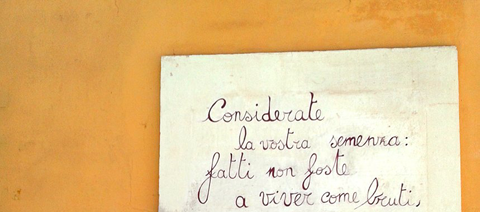 Considerate
la vostra semenza:
fatti non foste
a viver come bruti,